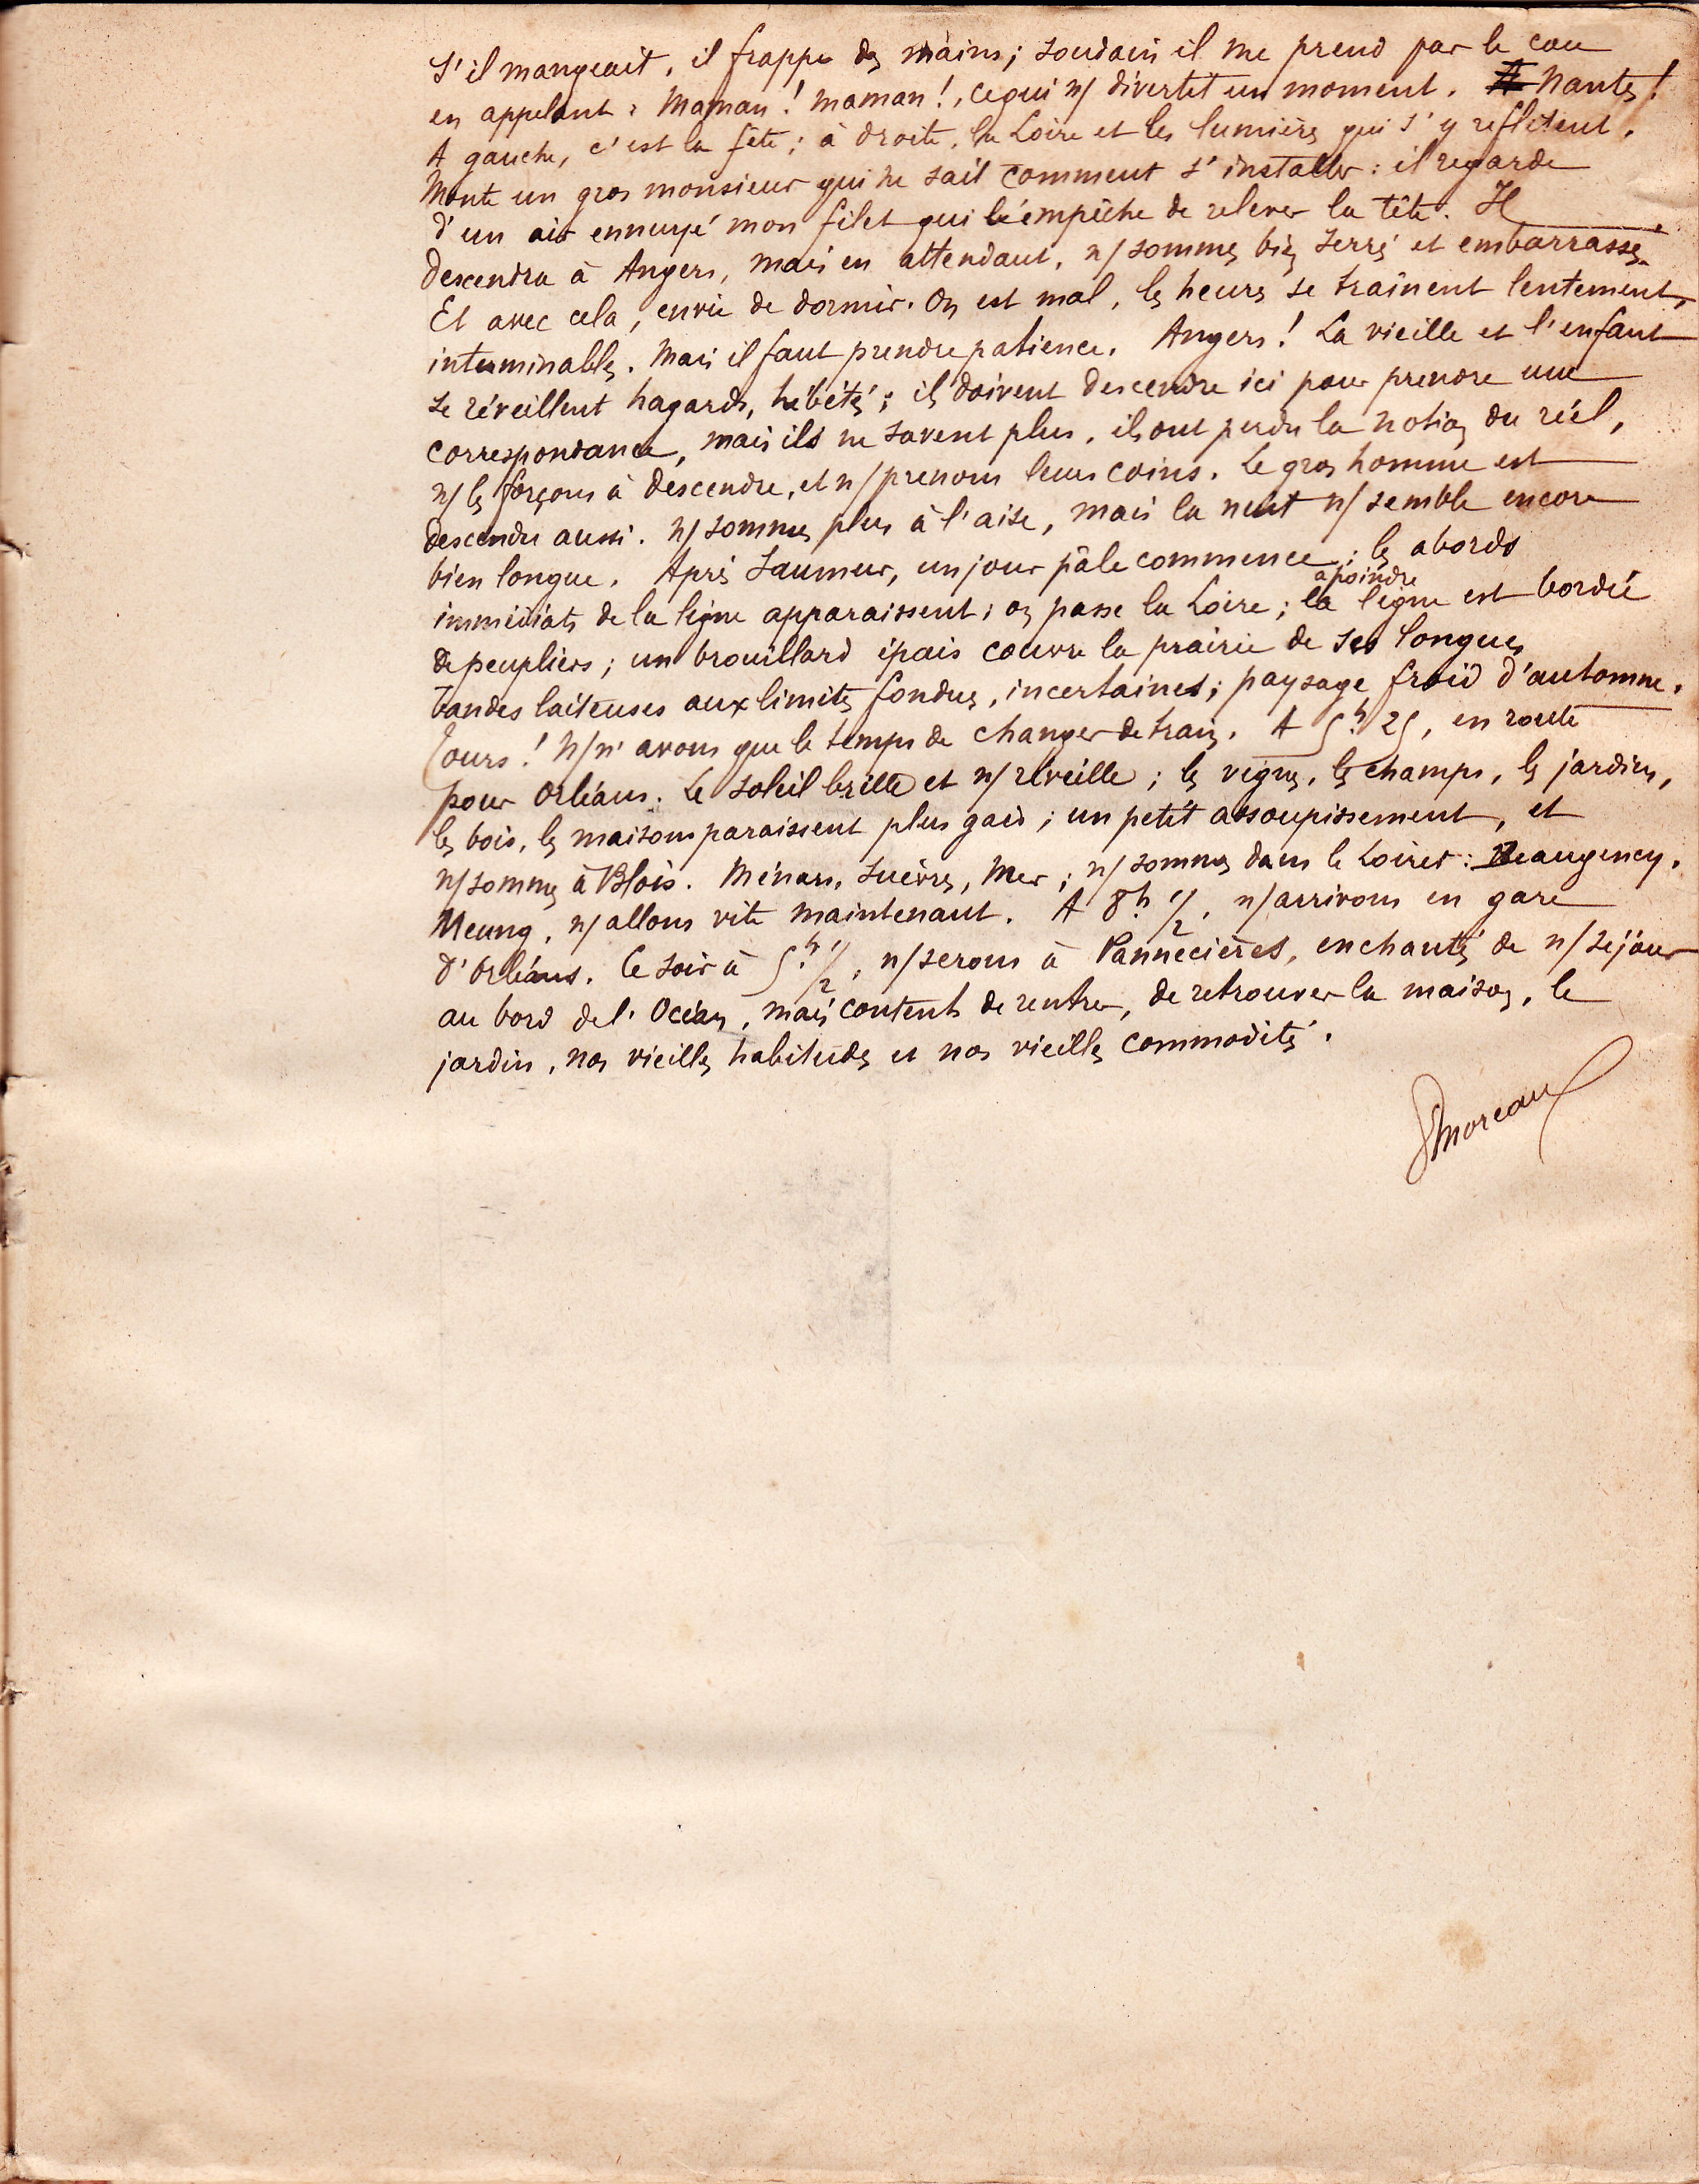 s'il mangeait, il frappe des mains ; soudain il me prend par le cou
en appelant : Maman ! maman !, ce qui n/ divertit un moment. A Nantes !
A gauche, c'est la fête ; à droite, la Loire et les lumières qui s'y reflètent.
Monte un gros monsieur qui ne sait comment s'installer : il regarde
d'un air ennuyé mon filet qui l'empêche de relever la tête. Il
descendra à Angers, mais en attendant, n/ sommes bien serrés et embarrassés.
Et avec cela, envie de dormir. On est mal, les heures se traînent lentement,
interminables. Mais il faut prendre patience. Angers ! La vieille et l'enfant
se réveillent hagards, hébétés ; ils doivent descendre ici pour prendre une
correspondance, mais ils ne savent plus, ils ont perdu la notion du réel,
n/ les forçons à descendre, et n/ prenons leurs coins. Le gros homme est
descendu aussi. n/ sommes plus à l'aise, mais la nuit n/ semble encore
bien longue. Après Saumur, un jour pâle commence ; les abords
à poindre
immédiats de la ligne apparaissent ; on passe la Loire ; la ligne est bordée
de peupliers ; un brouillard épais couvre la prairie de ses longues
bandes laiteuses aux limites fondues, incertaines ; paysage froid d'automne.
Tours ! N/ n'avons que le temps de changer de train. A 5h.25, en route
pour Orléans. Le soleil brille et n/ réveille ; les vignes, les champs, les jardins,
les bois, les maisons paraissent plus gais ; un petit assoupissement, et
n/ sommes à Blois. Ménars, Suèvres, Mer ; n/ sommes dans le Loiret : Beaugency.
Meung, n/ allons vite maintenant. A 8h. 1/2, n/ arrivons en gare
d'Orléans. Ce soir à 5h. 1/2, n/ serons à Pannecières, enchantés de n/ séjour
au bord de l'Océan, mais contents de rentrer, de retrouver la maison, le
jardin, nos vieilles habitudes et nos vieilles commodités.
Moreau